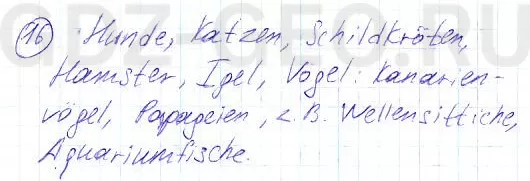 16 Hunde, Katzen, Schildkröten,
Hamster, Igel, Vögel: Kanarien-
vögel, Papageien, z. B. Wellensittiche,
Aquariumfische.